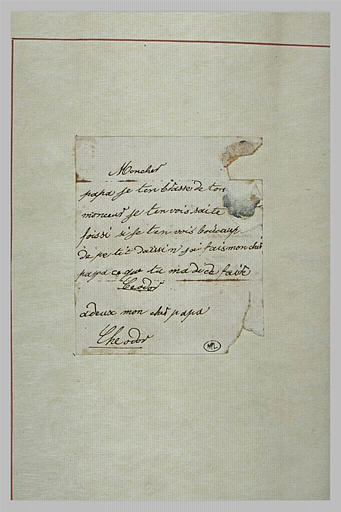 Moncher
papa je ten brasse de ton
monceur je ten vois saite
foissi si je ten vois bocoup
de petit daissin jai fais mon cher
papa ce que tu ma di de faire
Teodor
adeux mon cher papa
Theodor
ML